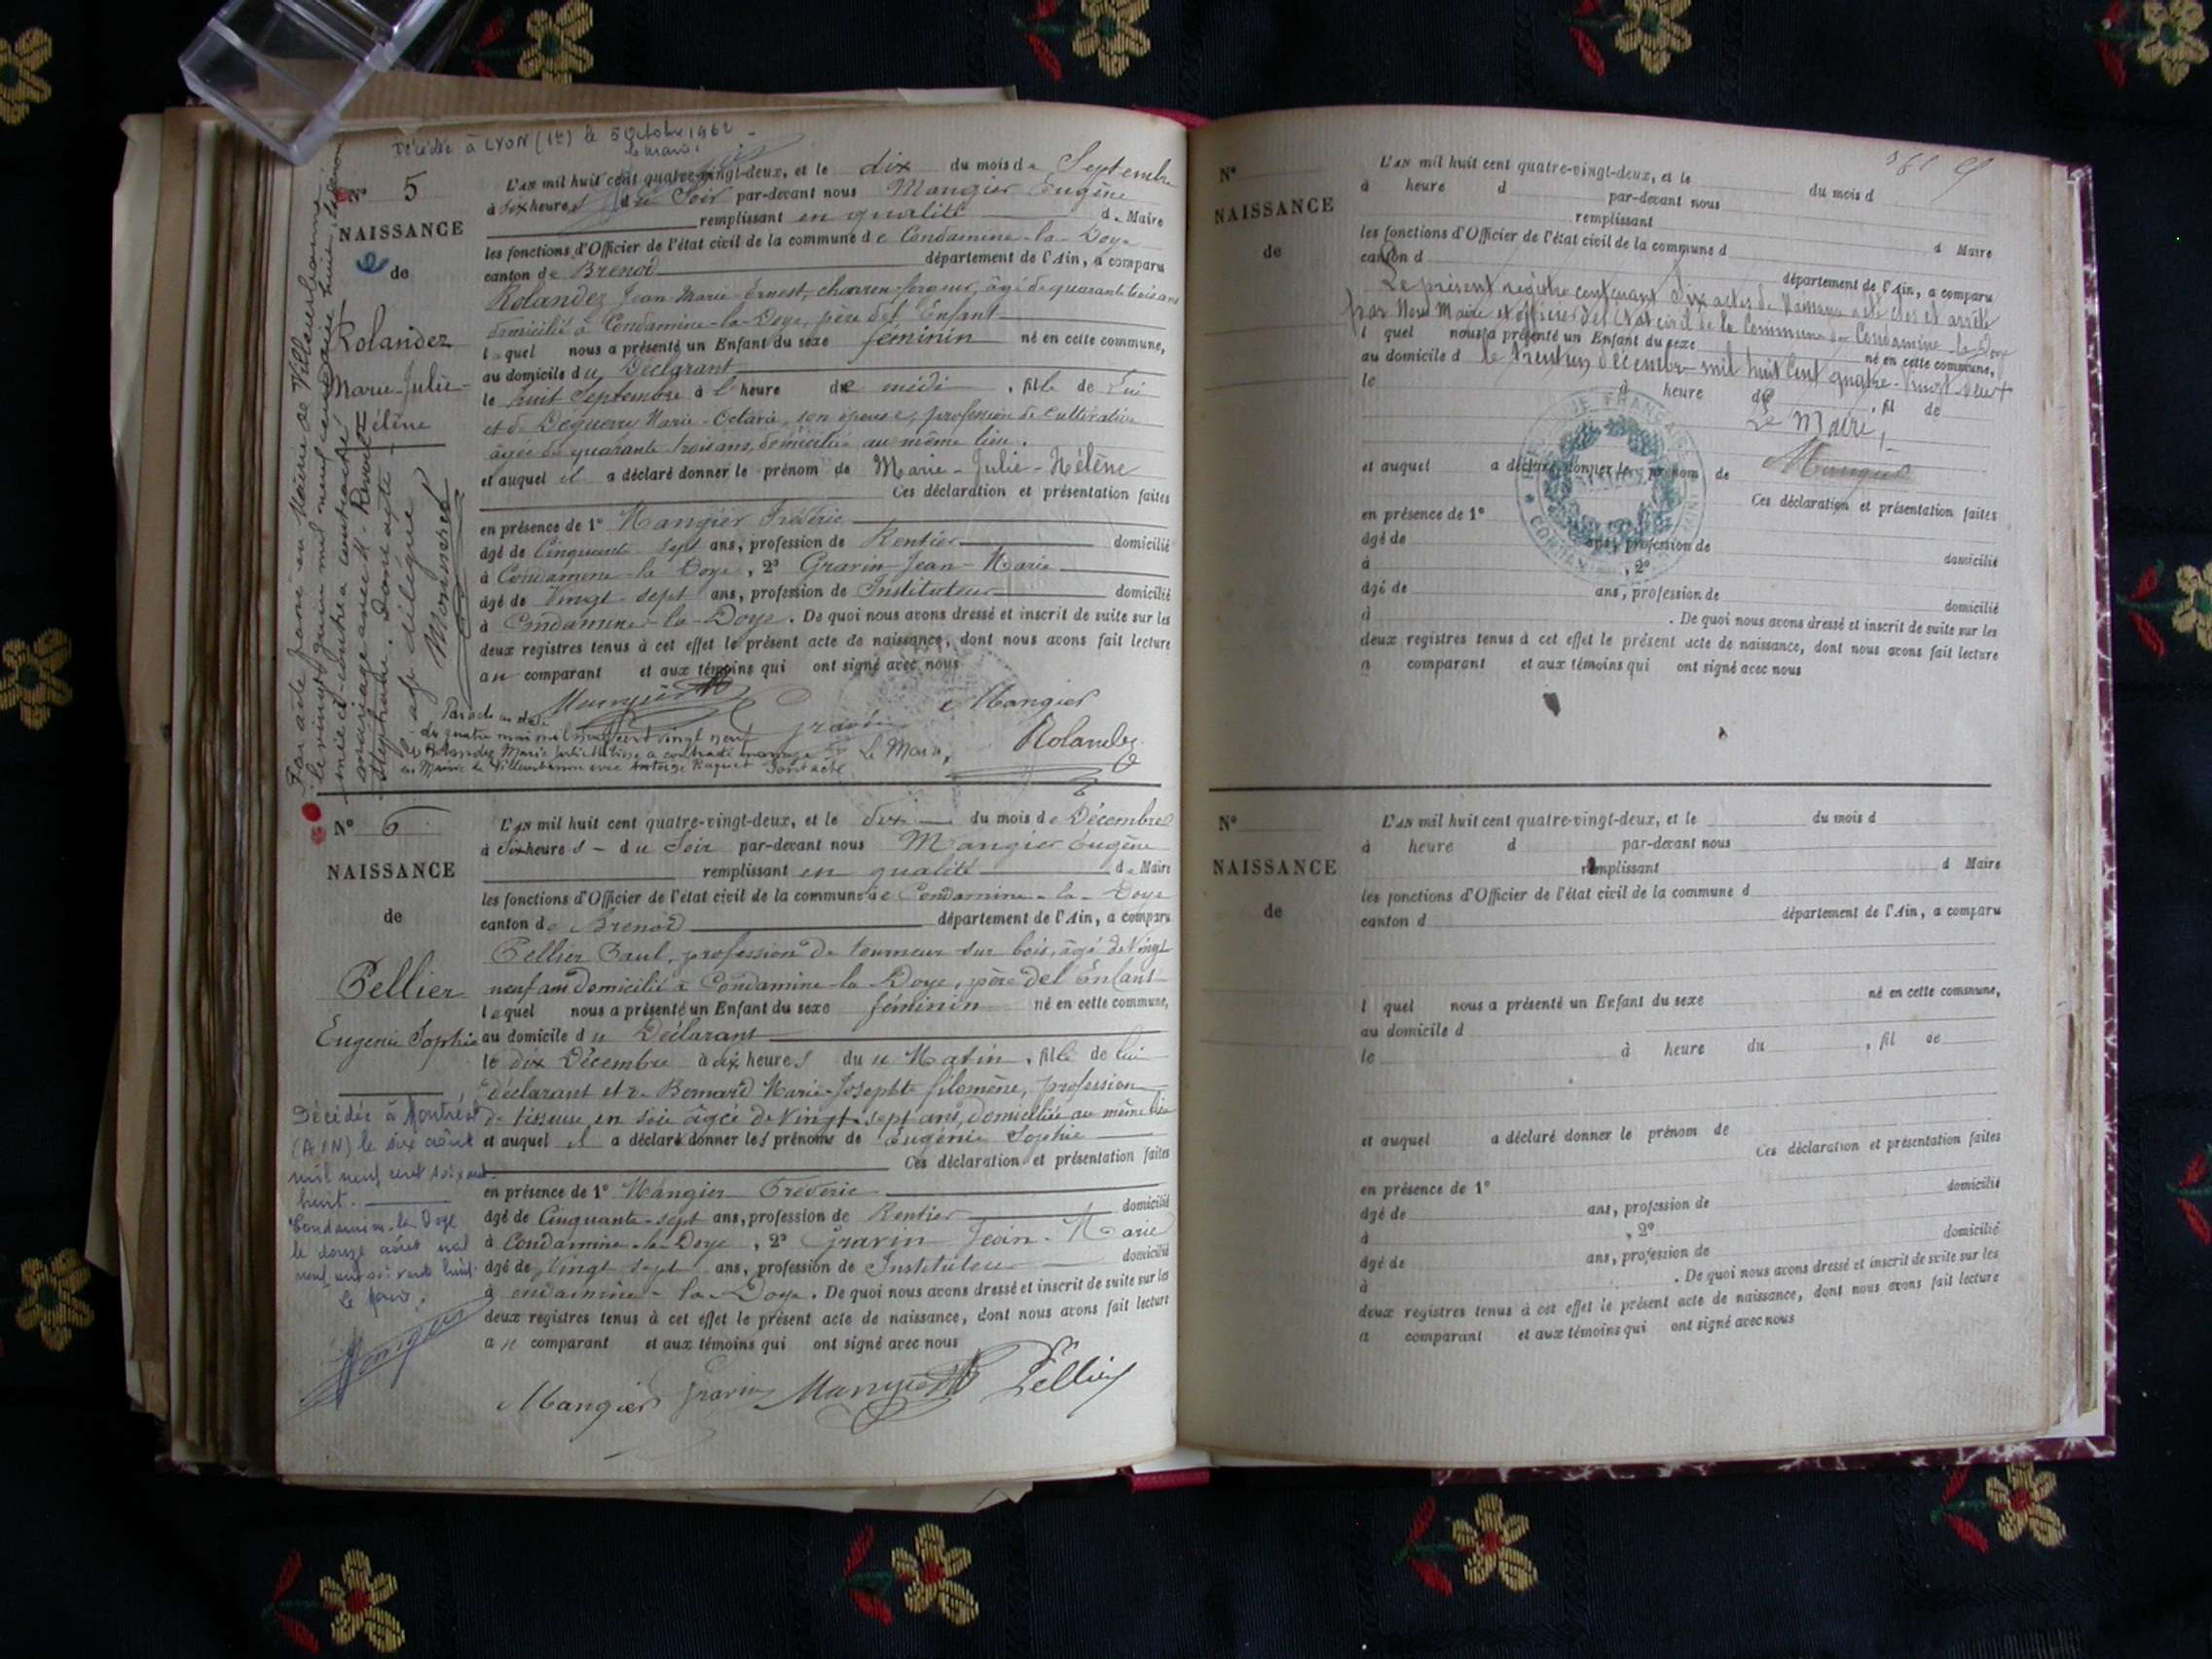 Décédée à LYON (1er) le 5 Octobre 1962
le maire
N° 5
NAISSANCE
de
Rolandez
Marie-Julie-
Hélène
L'AN mil huit cent quatre-vingt-deux, et le dix du mois de Septembre
à Six heures du Soir par-devant nous Mangier Eugène
remplissant en qualité de Maire
les fonctions d'Officier de l'état civil de la commune de Condamine-la-Doye
canton de Brenod département de l'Ain, a comparu
Rolandez Jean-Marie-Ernest, charron-forgeur, âgé de quarante trois ans
domicilié à Condamine-la-Doye, père de l'Enfant
lequel nous a présenté un Enfant du sexe féminin né en cette commune,
au domicile du Déclarant
le huit Septembre à l'heure de midi, fille de lui
et de Déguerry Marie-Octavie, son épouse, profession de cultivatrice
âgée de quarante trois ans, domiciliée au même lieu.
et auquel il a déclaré donner le prénom de Marie-Julie-Hélène
Ces déclaration et présentation faites
en présence de 1° Mangier Fréderic
âgé de Cinquante-sept ans, profession de Rentier domicilié
à Condamine-la-Doye, 2° Gravin-Jean-Marie
âgé de Vingt-sept ans, profession de Instituteur domicilié
à Condamine-la-Doye. De quoi nous avons dressé et inscrit de suite sur les
deux registres tenus à cet effet le présent acte de naissance, dont nous avons fait lecture
au comparant et aux témoins qui ont signé avec nous
Mangier
Gravin
Mangier
Rolandez
Le Maire,
Par acte passé en Mairie de Villeurbanne
le vingt juin mil neuf cent
mariage avec M.
Stéphane. Dont acte
Par acte en date
du quatre mai mil neuf cent vingt neuf
Rolandez Marie Julie Hélène a contracté mariage
en Mairie de Villeurbanne avec Antoine Raquet Dont acte
N° 6
NAISSANCE
de
Pellier
Eugenie Sophie
L'AN mil huit cent quatre-vingt-deux, et le dix du mois de Décembre
à Six heures du Soir par-devant nous Mangier Eugène
remplissant en qualité de Maire
les fonctions d'Officier de l'état civil de la commune de Condamine-la-Doye
canton de Brenod département de l'Ain, a comparu
Pellier Paul, profession de tourneur sur bois, âgé de Vingt
neuf ans domicilié à Condamine-la-Doye, père de l'Enfant
lequel nous a présenté un Enfant du sexe féminin né en cette commune,
au domicile du Déclarant
le dix Décembre à dix heures du Matin, fille de lui
déclarant et de Bernard Marie-Josephte filomène, profession
de tisseuse en soie âgée de Vingt-sept ans, domiciliée au même lieu
et auquel il a déclaré donner les prénoms de Eugénie Sophie
Ces déclaration et présentation faites
en présence de 1° Mangier Fréderic
âgé de Cinquante-sept ans, profession de Rentier domicilié
à Condamine-la-Doye, 2° Gravin Jean-Marie
âgé de Vingt sept ans, profession de Instituteur domicilié
à Condamine-la-Doye. De quoi nous avons dressé et inscrit de suite sur les
deux registres tenus à cet effet le présent acte de naissance, dont nous avons fait lecture
au comparant et aux témoins qui ont signé avec nous
Mangier Gravin Mangier Pellier
Décédée à Montréal
(AIN) le six août
mil neuf cent soixante
huit.
Condamine-la Doye
le douze août mil
neuf cent soixante huit
N°
NAISSANCE
de
L'AN mil huit cent quatre-vingt-deux, et le du mois d
à heure d par-devant nous
remplissant d Maire
les fonctions d'Officier de l'état civil de la commune d
canton d département de l'Ain, a comparu
Le présent régistre contenant Six actes de Naissance a été clos et arrêté
par Nous Maire et officier de l'état civil de la Commune de Condamine-la-Doye
l quel nous a présenté un Enfant du sexe né en cette commune,
au domicile d
le trente un décembre mil huit cent quatre-vingt deux
le à heure du , fil de
Le Maire,
Mangier
et auquel a déclaré donner le prénom de
Ces déclaration et présentation faites
en présence de 1°
âgé de ans, profession de domicilié
à , 2°
âgé de ans, profession de domicilié
à . De quoi nous avons dressé et inscrit de suite sur les
deux registres tenus à cet effet le présent acte de naissance, dont nous avons fait lecture
a comparant et aux témoins qui ont signé avec nous
N°
NAISSANCE
de
L'AN mil huit cent quatre-vingt-deux, et le du mois d
à heure d par-devant nous
remplissant d Maire
les fonctions d'Officier de l'état civil de la commune d
canton d département de l'Ain, a comparu
l quel nous a présenté un Enfant du sexe né en cette commune,
au domicile d
le à heure du , fil de
et auquel a déclaré donner le prénom de
Ces déclaration et présentation faites
en présence de 1° domicilié
âgé de ans, profession de
à , 2° domicilié
âgé de ans, profession de
à . De quoi nous avons dressé et inscrit de suite sur les
deux registres tenus à cet effet le présent acte de naissance, dont nous avons fait lecture
a comparant et aux témoins qui ont signé avec nous